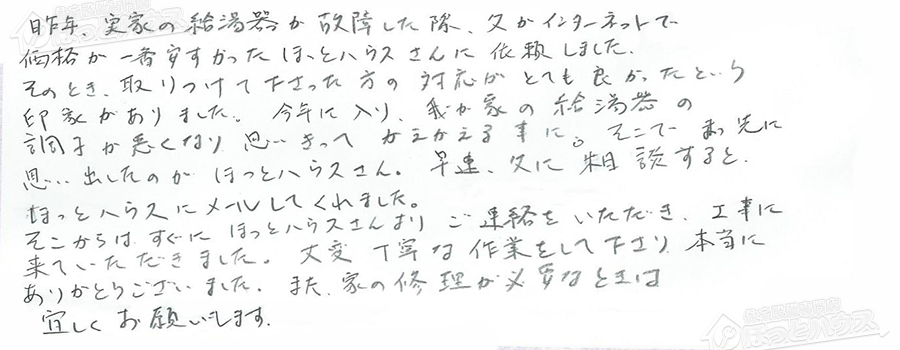 昨年、実家の給湯器が故障した際、父がインターネットで
価格が一番安すかったほっとハウスさんに依頼しました。
そのとき、取りつけて下さった方の対応がとても良かったという
印象がありました。今年に入り、我が家の給湯器の
調子が悪くなり思いきってかえかえる事に。そこでまっ先に
思い出したのがほっとハウスさん。早速、父に相談すると、
ほっとハウスにメールしてくれました。
そこからは、すぐにほっとハウスさんよりご連絡をいただき、工事に
来ていただきました。大変丁寧な作業をして下さり本当に
ありがとうございました。また、家の修理が必要なときは
宜しくお願いします。
ほっとハウス